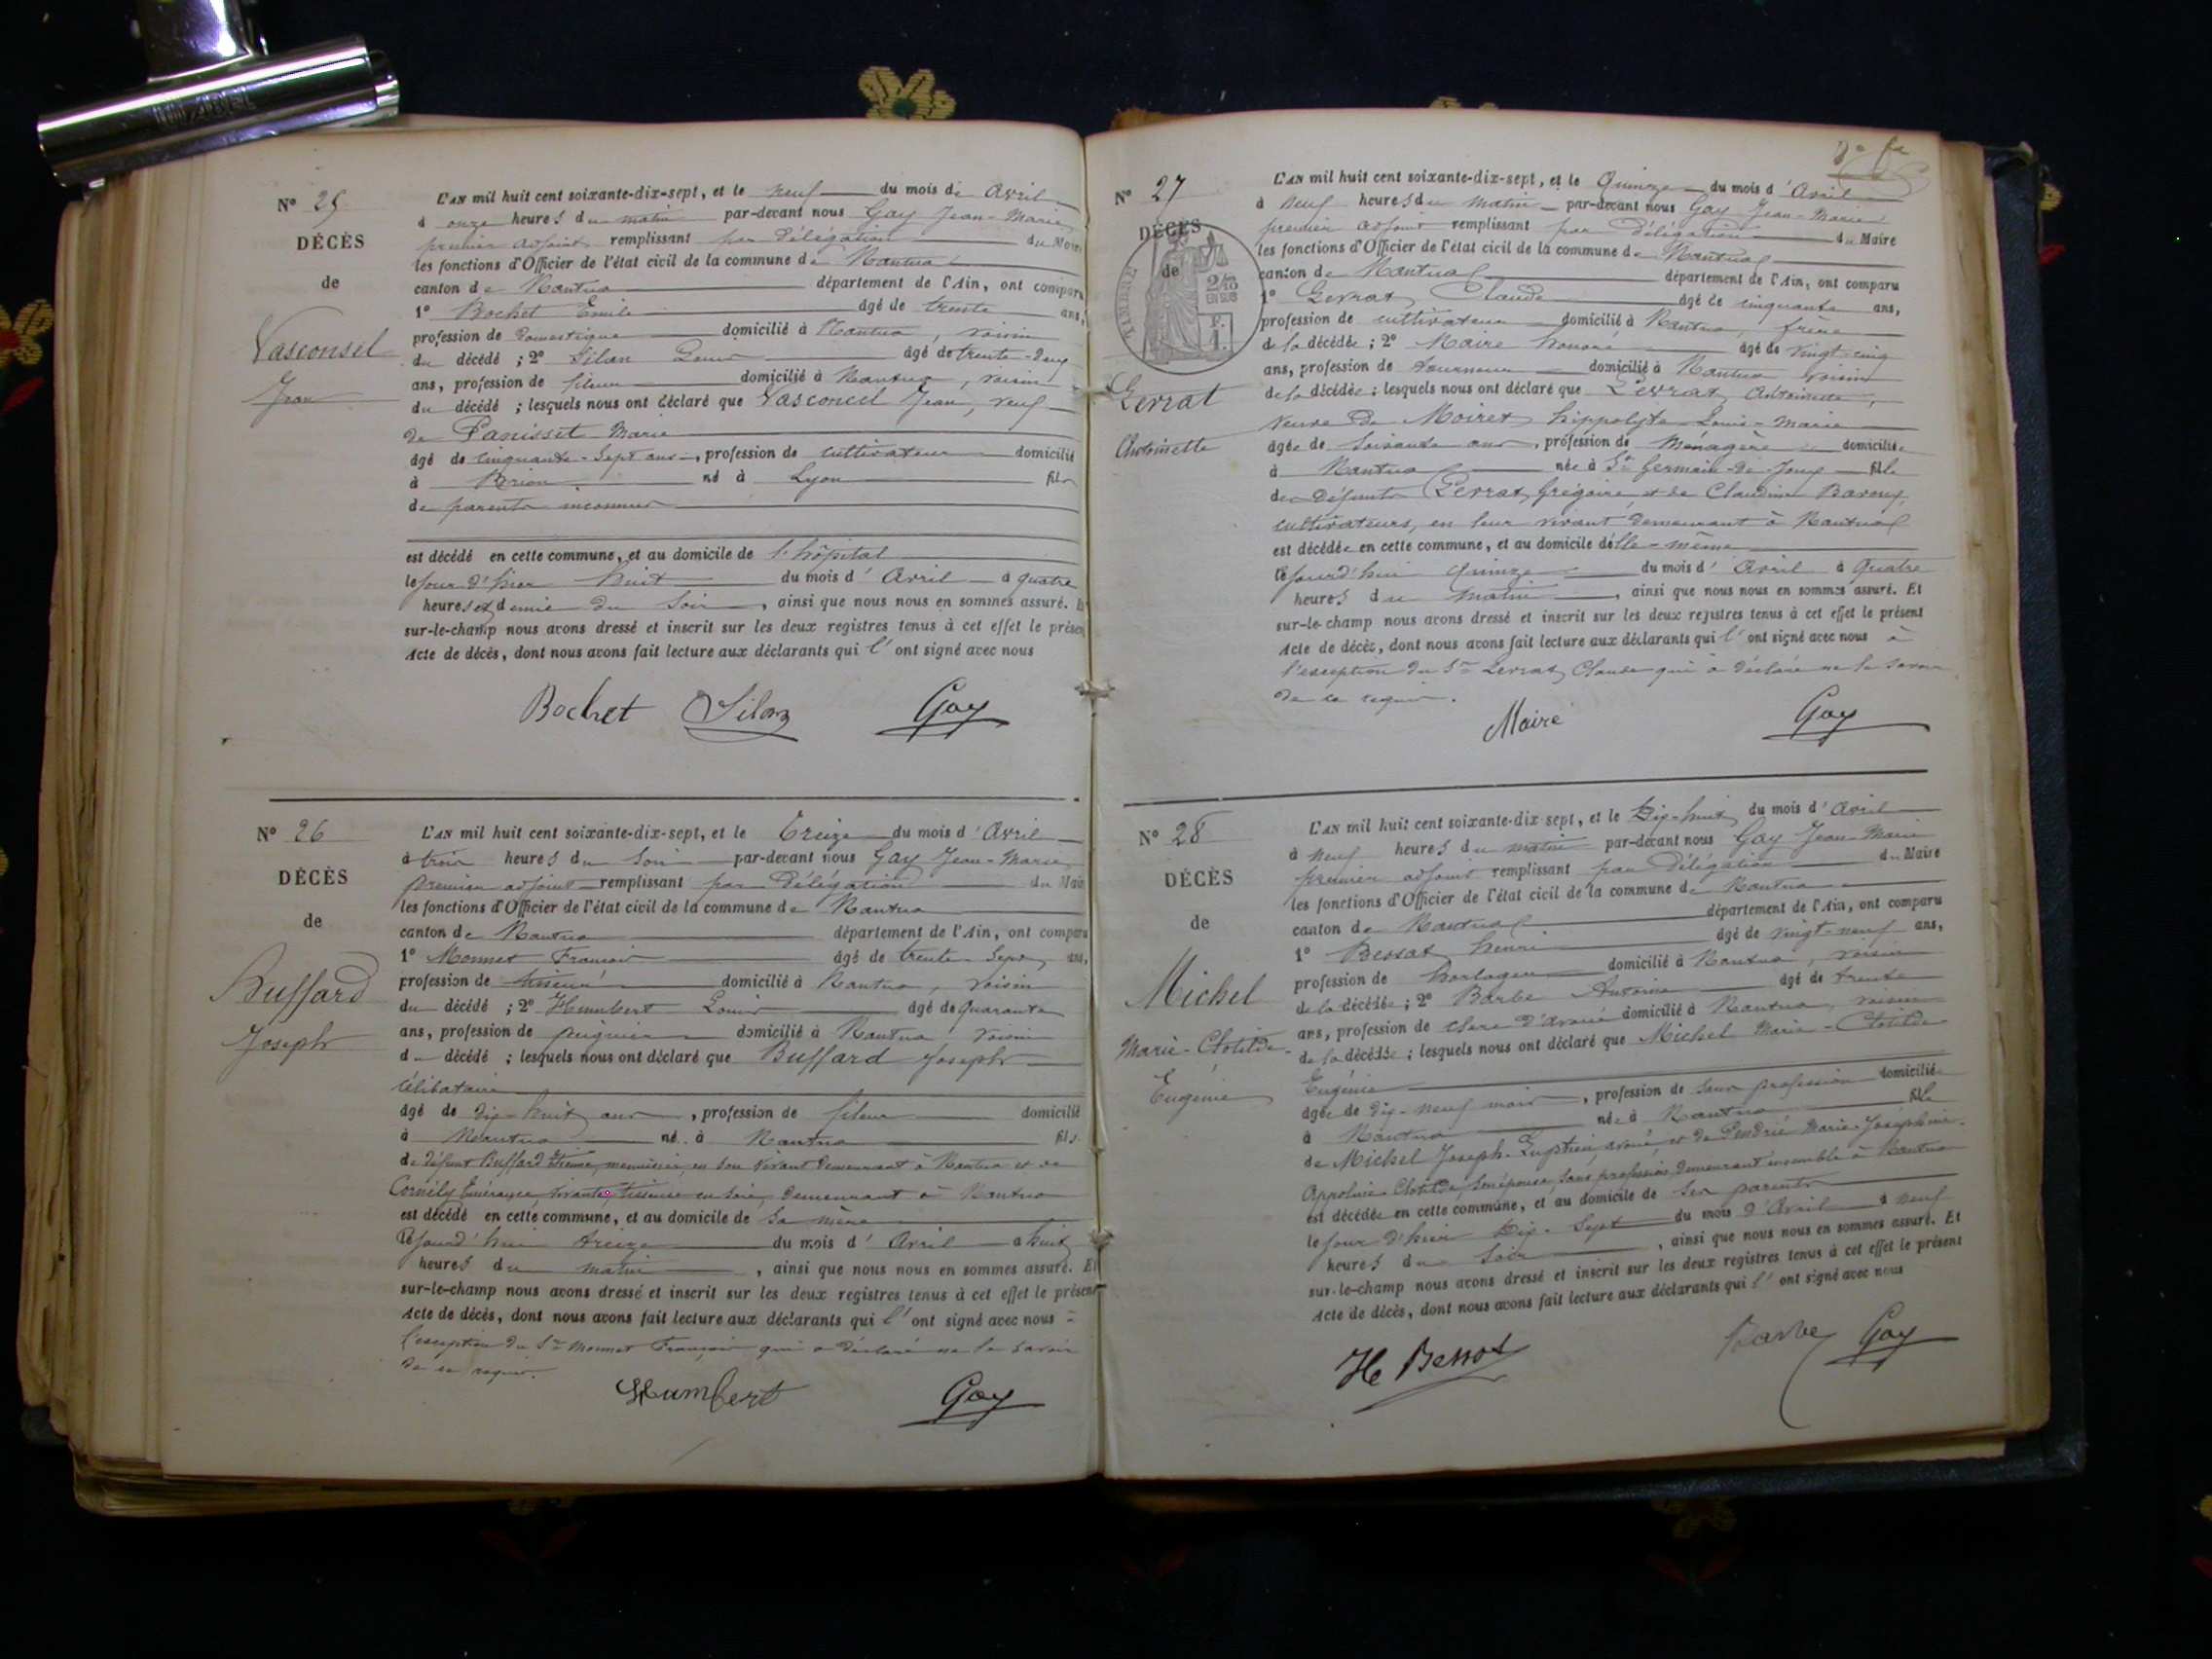 N° 25
DÉCÈS
de
Vasconsel
Jean
L'AN mil huit cent soixante-dix-sept, et le neuf du mois de Avril
à onze heures du matin par-devant nous Gay Jean-Marie
premier adjoint remplissant par délégation du Maire
les fonctions d'Officier de l'état civil de la commune de Nantua
canton de Nantua département de l'Ain, ont comparu
1° Bochet Emile âgé de trente ans,
profession de domestique domicilié à Nantua, voisin
du décédé ; 2° Silan Louis âgé de trente-deux
ans, profession de fileur domicilié à Nantua, voisin
du décédé ; lesquels nous ont déclaré que Vasconcel Jean, veuf
de Panisset Marie
âgé de cinquante-sept ans, profession de cultivateur domicilié
à Brion né à Lyon fils
de parents inconnus
est décédé en cette commune, et au domicile de l'hôpital
le jour d'hier huit du mois d'Avril à quatre
heures et demie du soir, ainsi que nous nous en sommes assuré. Et
sur-le-champ nous avons dressé et inscrit sur les deux registres tenus à cet effet le présent
Acte de décès, dont nous avons fait lecture aux déclarants qui l'ont signé avec nous
Bochet Silan Gay
N° 26
DÉCÈS
de
Buffard
Joseph
L'AN mil huit cent soixante-dix-sept, et le Treize du mois d'Avril
à trois heures du soir par-devant nous Gay Jean-Marie
premier adjoint remplissant par délégation du Maire
les fonctions d'Officier de l'état civil de la commune de Nantua
canton de Nantua département de l'Ain, ont comparu
1° Monnet François âgé de trente-sept ans,
profession de domicilié à Nantua, voisin
du décédé ; 2° Humbert Louis âgé de Quarante
ans, profession de peignier domicilié à Nantua voisin
du décédé ; lesquels nous ont déclaré que Buffard Joseph
Célibataire
âgé de dix-huit ans, profession de fileur domicilié
à Nantua né à Nantua fils
de défunt Buffard Etienne, menuisier, en son vivant demeurant à Nantua et de
Cornély Emérance, vivante, tisseuse en soie, demeurant à Nantua
est décédé en cette commune, et au domicile de sa mère
le jourd'hui treize du mois d'Avril à huit
heures du matin, ainsi que nous nous en sommes assuré. Et
sur-le-champ nous avons dressé et inscrit sur les deux registres tenus à cet effet le présent
Acte de décès, dont nous avons fait lecture aux déclarants qui l'ont signé avec nous à
l'exception du Sr Monnet François qui a déclaré ne le savoir
de ce requis.
Humbert Gay
N° 27
DÉCÈS
de
TIMBRE
2/10
EN SUS
F.
1.
Levrat
Antoinette
L'AN mil huit cent soixante-dix-sept, et le Quinze du mois d'Avril
à neuf heures du matin par-devant nous Gay Jean-Marie
premier adjoint remplissant par délégation du Maire
les fonctions d'Officier de l'état civil de la commune de Nantua
canton de Nantua département de l'Ain, ont comparu
1° Levrat Claude âgé de cinquante ans,
profession de cultivateur domicilié à Nantua, frère
de la décédée ; 2° Maire honoré âgé de vingt-cinq
ans, profession de tourneur domicilié à Nantua voisin
de la décédée ; lesquels nous ont déclaré que Levrat Antoinette,
veuve de Moiret hippolyte Louis-Marie
âgée de soixante ans, profession de Ménagère domiciliée
à Nantua née à St Germain-de-Joux fille
de défunts Levrat Grégoire et de Claudine Baroux,
cultivateurs, en leur vivant demeurant à Nantua
est décédée en cette commune, et au domicile d'elle-même
le jourd'hui quinze du mois d'Avril à Quatre
heures du matin, ainsi que nous nous en sommes assuré. Et
sur-le-champ nous avons dressé et inscrit sur les deux registres tenus à cet effet le présent
Acte de décès, dont nous avons fait lecture aux déclarants qui l'ont signé avec nous à
l'exception du Sr Levrat Claude qui a déclaré ne le savoir
de ce requis.
Maire Gay
N° 28
DÉCÈS
de
Michel
Marie-Clotilde-
Eugénie
L'AN mil huit cent soixante-dix-sept, et le Dix-huit du mois d'Avril
à neuf heures du matin par-devant nous Gay Jean-Marie
premier adjoint remplissant par délégation du Maire
les fonctions d'Officier de l'état civil de la commune de Nantua
canton de Nantua département de l'Ain, ont comparu
1° Bessat henri âgé de vingt-neuf ans,
profession de horloger domicilié à Nantua, voisin
de la décédée ; 2° Barbe Antoine âgé de trente
ans, profession de clerc d'avoué domicilié à Nantua, voisin
de la décédée ; lesquels nous ont déclaré que Michel Marie-Clotilde
Eugénie
âgée de dix-neuf mois, profession de sans profession domiciliée
à Nantua née à Nantua fille
de Michel Joseph avoué et de Marie-Joséphine-
Appoline-Clotilde, son épouse, sans profession, demeurant ensemble à Nantua
est décédée en cette commune, et au domicile de ses parents
le jour d'hier Dix-Sept du mois d'Avril à neuf
heures du soir, ainsi que nous nous en sommes assuré. Et
sur-le-champ nous avons dressé et inscrit sur les deux registres tenus à cet effet le présent
Acte de décès, dont nous avons fait lecture aux déclarants qui l'ont signé avec nous
He Bessat Barbe Gay